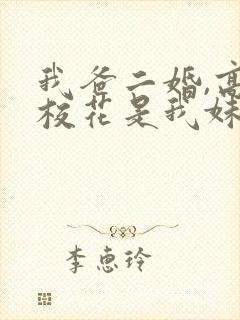 我爸二婚,高
校花是我妹
李惠玲